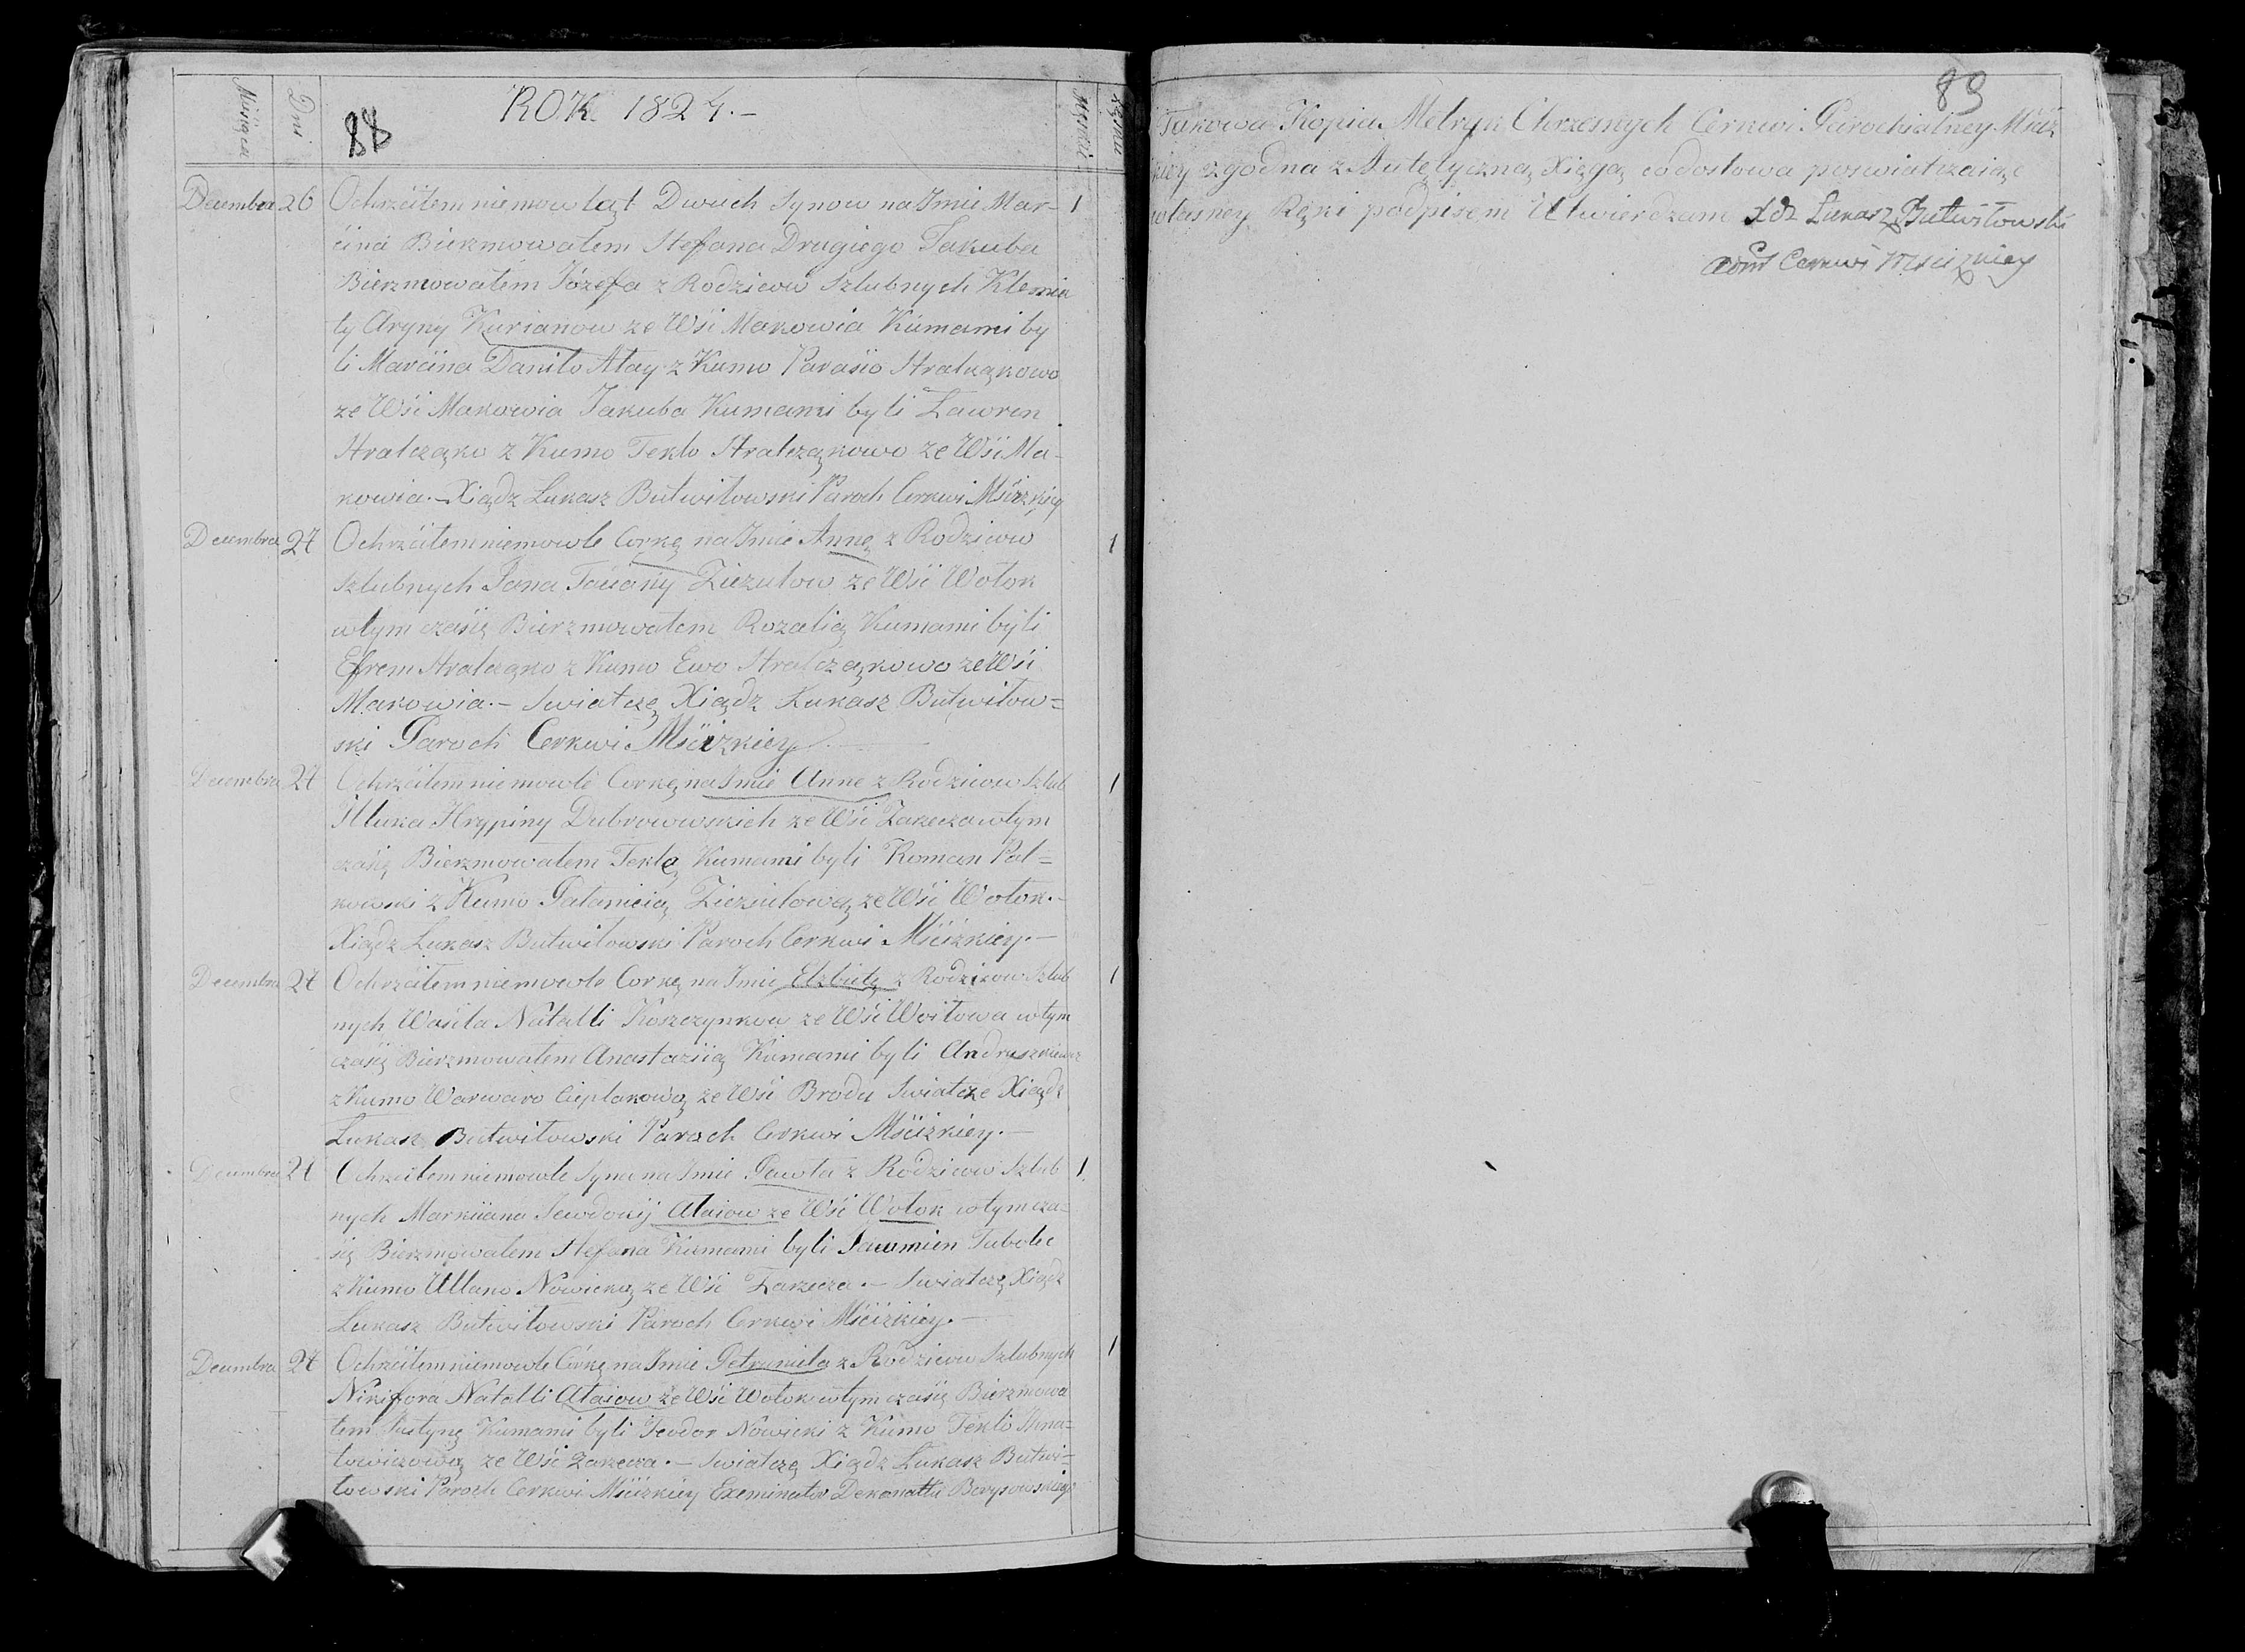 Miesiąca
Dni
88
ROK 1824. -
Męzkiei
Decembra 26 Ochrzcitem niemowląt Dwuch Synow na Jmie Mar- 1
cina Bierzmowałem Stefana Drugiego Jakuba
Bierzmowałem Józefa z Rodzicow Szlubnych Klemia
ty Aryny Kurianow ze Wśi Makowia Kumami by
li Marcina Daniło Ałay z Kumo Parasio Hralcząkowo
ze Wśi Makowia Jakuba Kumami byli Lawren
Hralcząko z Kumo Teklo Hralcząkowo ze Wśi Ma-
kowia. - Xiądz Lukasz Butwiłowski Paroch Cerkwi Mścizkiey
Decembra 27 Ochrzciłem niemowle Corkę na Jmie Annę z Rodzicow 1
Szlubnych Jana Taciany Ziezulow ze Wśi Wołok
wtym czasię Bierzmowałem Rozalią Kumami byli
Efrem Hralcząko z Kumo Ewo Hralcząkowo ze Wśi
Makowia. - Swiatczę Xiądz Łukasz Butwiłow=
ski Paroch Cerkwi Mścizkiey. -
Decembra 27 Ochrzciłem niemowle Corkę na Jmie Anne z Rodzicow Szlub 1
Iluka Hrypiny Dubrowowskich ze Wśi Zarecza wtym
czasię Bierzmowałem Teklę Kumami byli Roman Pal=
kowski z Kumo Pałanieią Ziezulową ze Wśi Wołok. -
Xiądz Lukasz Butwiłowski Paroch Cerkwi Mścizkiey. -
Decembra 27 Ochrzciłem niemowle Corkę na Jmie Elzbietę z Rodzicow Szlub 1
nych Wasila Natalli Koszczynkow ze Wśi Woitowa wtym
czasię Bierzmowałem Anastaziią Kumami byli Andruszkiewicz
z Kumo Warwaro Cieplakową ze Wśi Brodu Swiatcze Xiądz
Lukasz Butwiłowski Paroch Cerkwi Mścizkiey. -
Decembra 27 Ochrzciłem niemowle Syna na Jmie Pawła z Rodzicow Szlub 1
nych Markiiana Jewdokij Ałaiow ze Wśi Wołok wtym cza-
się Bierzmowałem Stefana Kumami byli Jaumien Tubolec
z Kumo Ullano Nowicką ze Wśi Zarzecza. - Swiatczę Xiądz
Lukasz Butwiłowski Paroch Cerkwi Mścizkiey. -
Decembra 27 Ochrzciłem niemowle Córkę na Jmie Petrunielą z Rodzicow Szlubnych 1
Nikifora Natalli Ałaiow ze Wśi Wołok wtym czasię Bierzmowa
łem Justynę Kumami byli Teodor Nowicki z Kumo Teklo Hna=
towiczową ze Wśi Zarzecza. - Swiatczę Xiądz Lukasz Butwi=
łowski Paroch Cerkwi Mścizkiey Exeminator Dekanattu Borysowskiego
89
Takowa Kopia Metryk Chrzesnych Cerkwi Parochialney Mściz
kiey zgodna z Autętyczną Xięgą co dosłowa poswiatczaiąc
własney Ręki podpisem Utwierdzam Xdz Lukasz Butwiłowski
Cerkwi Mscizkiey